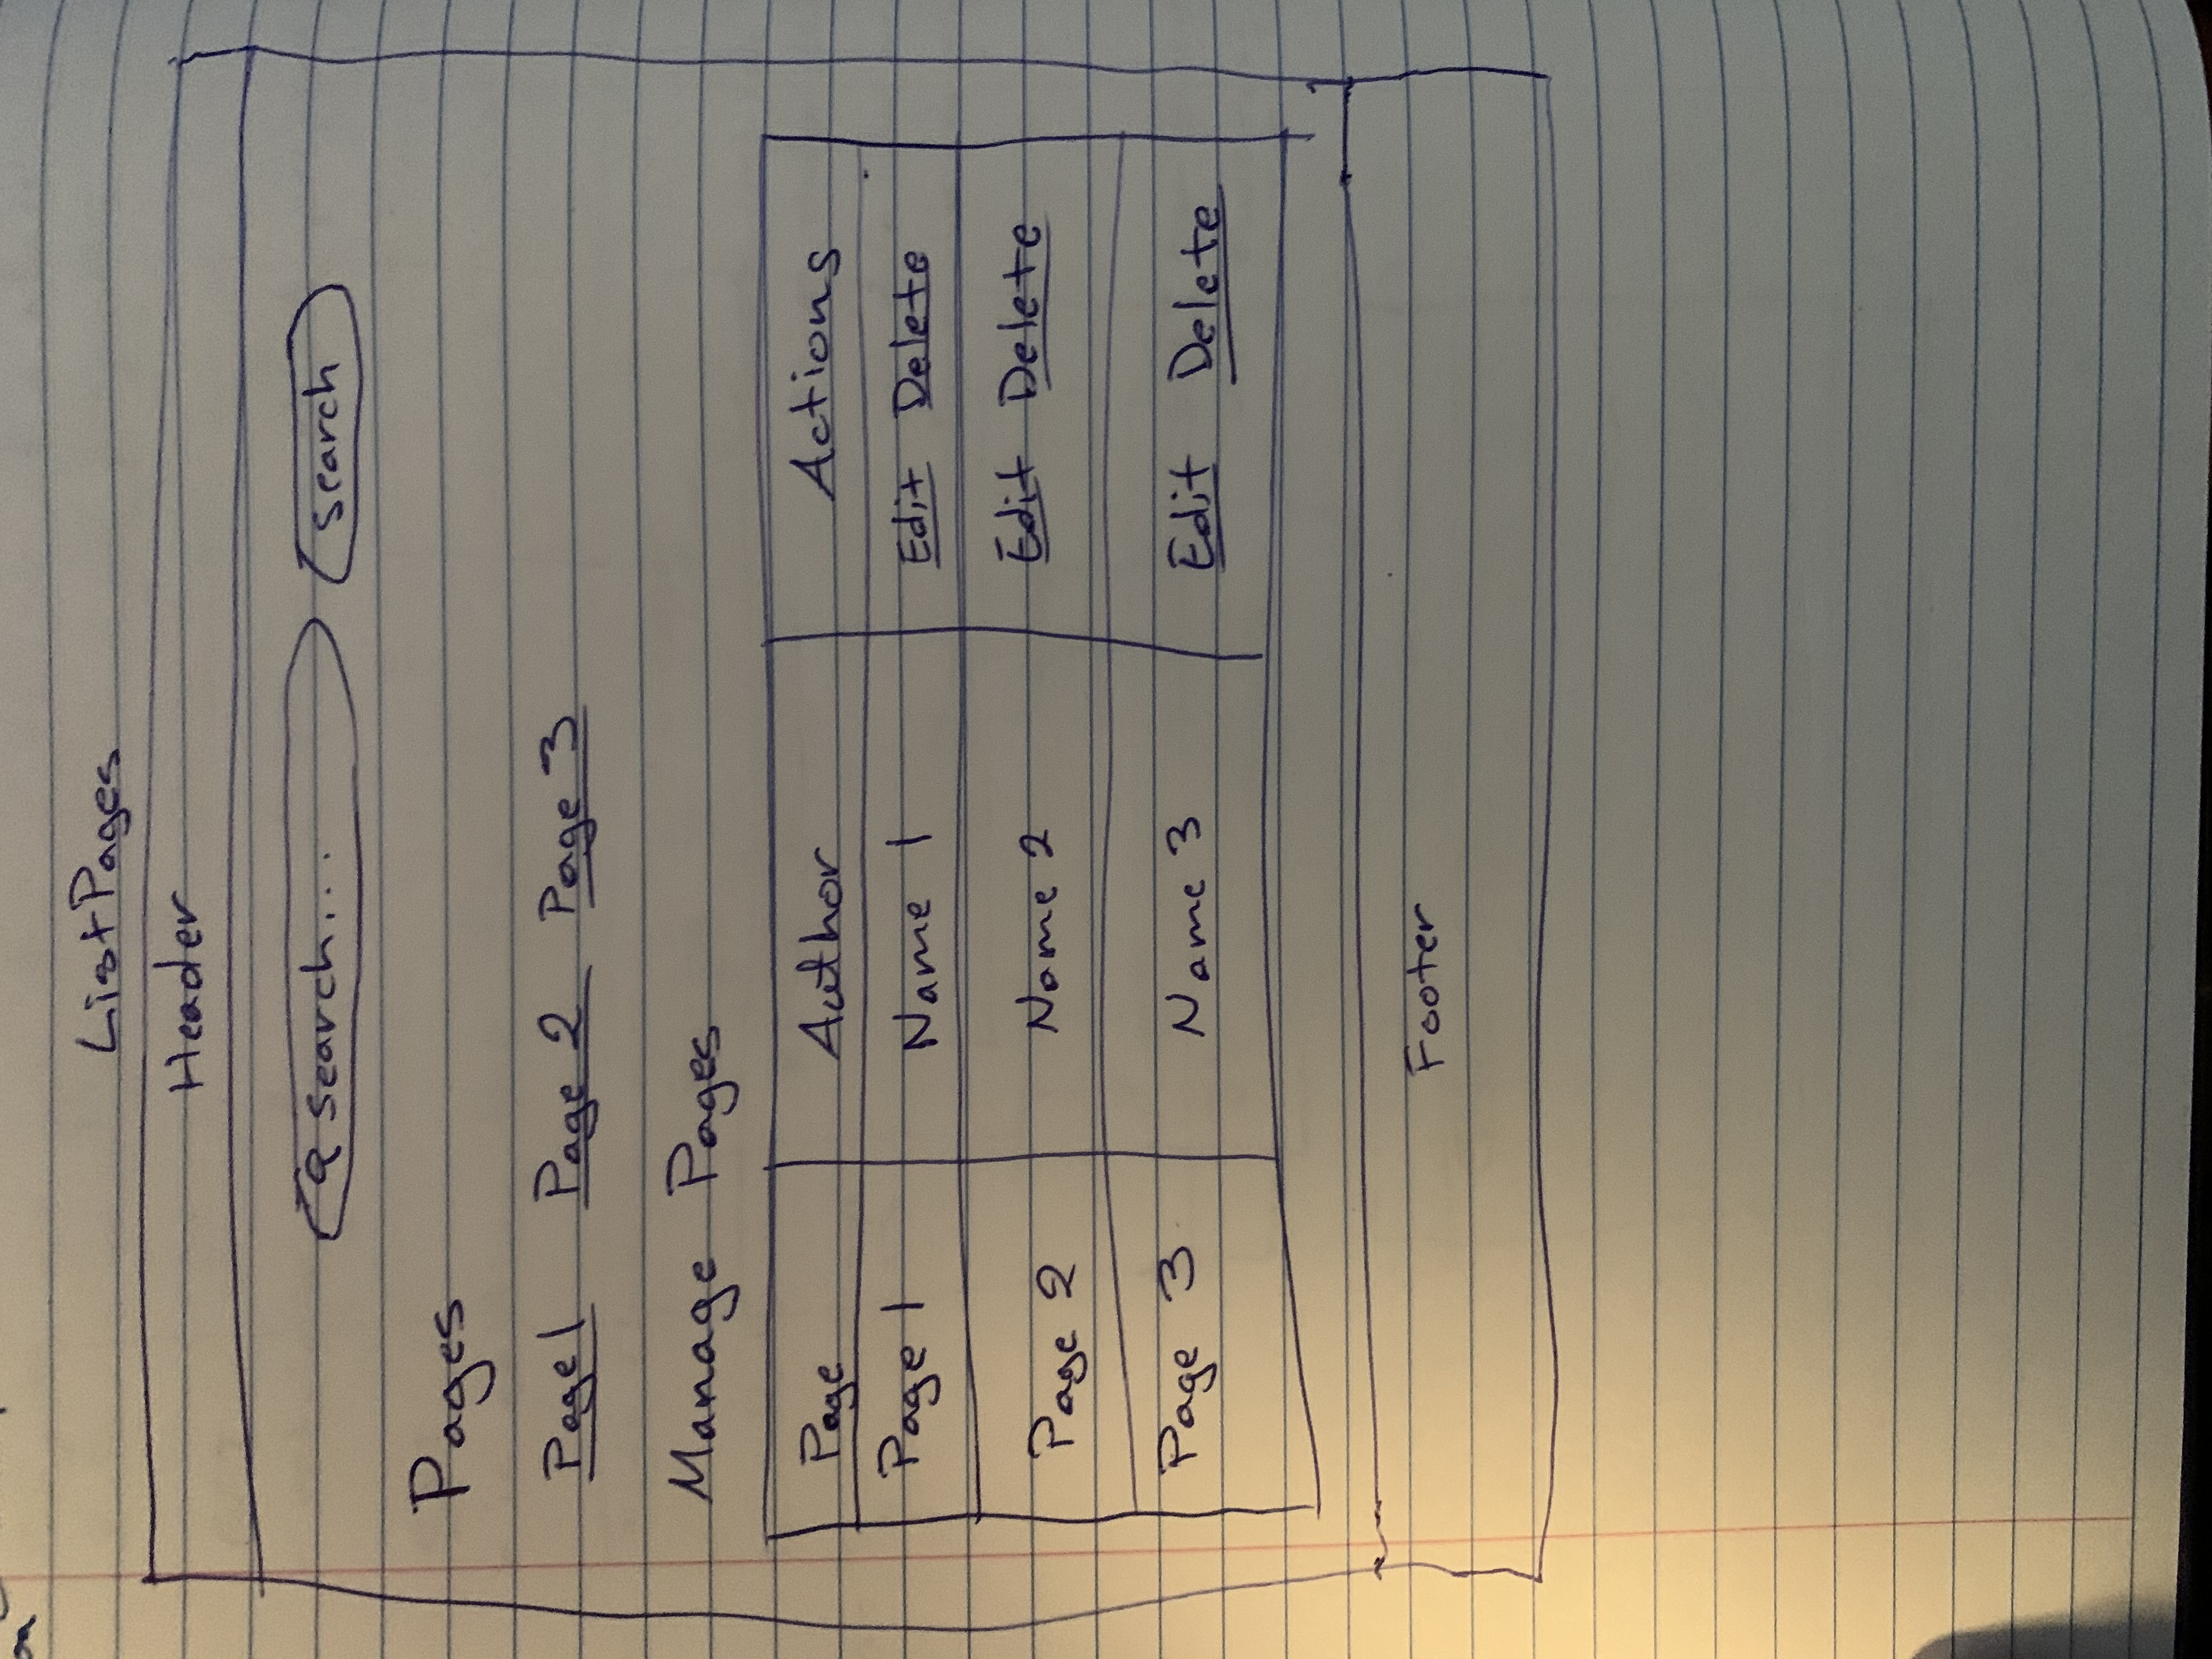 List Pages
Header
search... search
Pages
Page 1 Page 2 Page 3
Manage Pages
Page Author Actions
Page 1 Name 1 Edit Delete
Page 2 Name 2 Edit Delete
Page 3 Name 3 Edit Delete
Footer